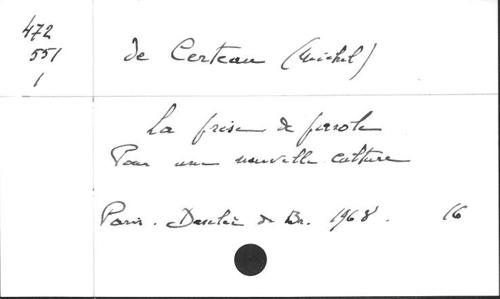 472
551
1
de Certeau (Michel)
La prise de parole
Pour une nouvelle culture
Paris. Desclée de Br. 1968. 16